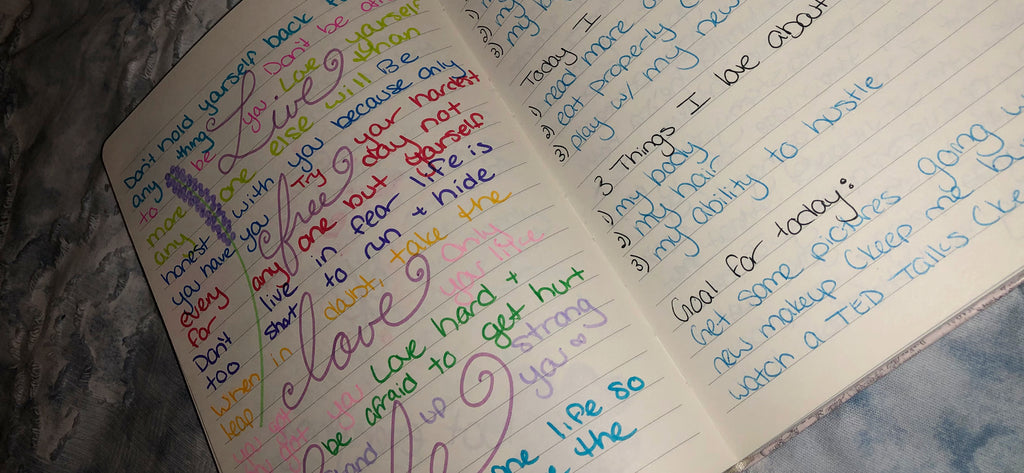 Don't hold yourself back
any thing you Don't be
to be Live Love yourself
more one than
any else will Be
honest with you because only
you have you Try your hardest
every free day not
for any one but yourself
Don't live in fear life is
too short to run + hide
When in doubt, take the
leap love Only
you live
you Love hard +
be afraid to get hurt
up strong
you
one life so
the
1)
2) my
3) my
Today I
1) read more
2) eat properly
3) play w/ my new
3 Things I love about
1) my body
2) my hair
3) my ability to hustle
Goal for today:
Get some pictures going
new makeup (keep me
watch a TED Talks